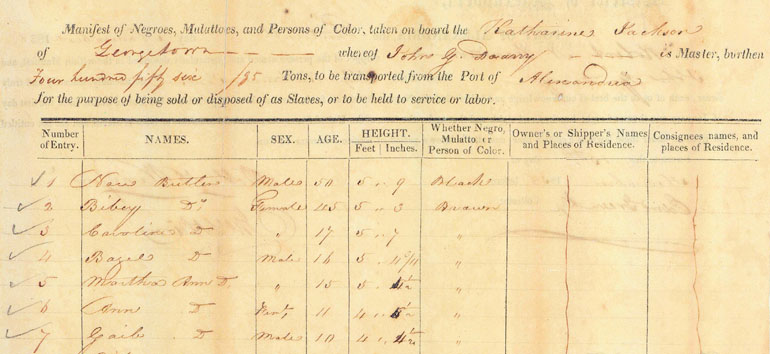 Manifest of Negroes, Mulattoes, and Persons of Color, taken on board the Katharine Jackson
of Georgetown whereof is Master, burthen
Four hundred fifty six /95 Tons, to be transported from the Port of Alexandria
for the purpose of being sold or disposed of as Slaves, or to be held to service or labor.
Number of Entry. NAMES. SEX. AGE. HEIGHT. Feet Inches. Whether Negro, Mulatto, or Person of Color. Owner's or Shipper's Names and Places of Residence. Consignees names, and places of Residence.
1 Nace Butler Male 50 5 " 9 Black
2 Bibey Do Female 45 5 " 3 Brown
3 Caroline D " 17 5 " 7 "
4 Bazel D Male 16 5 "
5 Martha Ann D " 15 5 " 4½ "
6 Ann D 11 4 "
7 Gaib D Male 10 4 " 4½ "